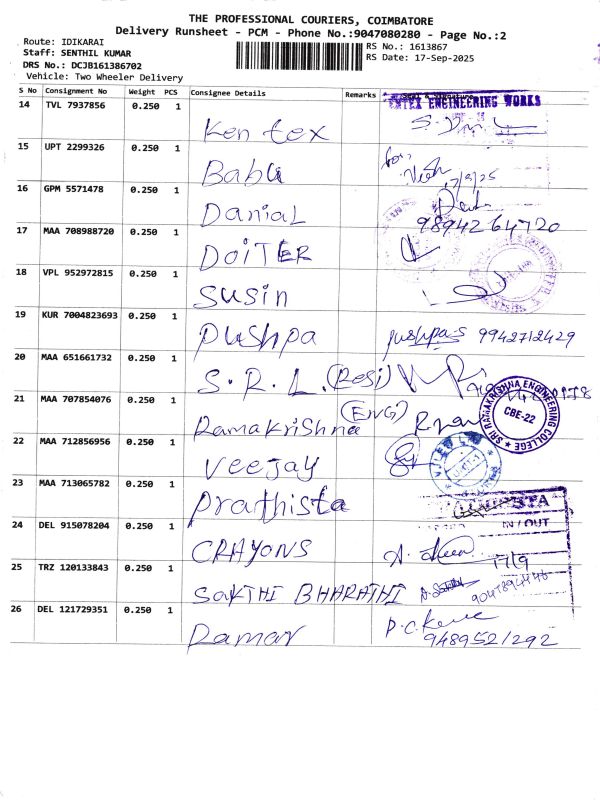 THE PROFESSIONAL COURIERS, COIMBATORE
Delivery Runsheet - PCM - Phone No.:9047080280 - Page No.:2
Route: IDIKARAI
RS No.: 1613867
Staff: SENTHIL KUMAR
RS Date: 17-Sep-2025
DRS No.: DCJB161386702
Vehicle: Two Wheeler Delivery
S No Consignment No Weight PCS Consignee Details Remarks
ENGINEERING WORKS
14 TVL 7937856 0.250 1 Ken tex
15 UPT 2299326 0.250 1 Babu
17/9/25
16 GPM 5571478 0.250 1 Danial
9894264720
17 MAA 708988720 0.250 1 DOITER
18 VPL 952972815 0.250 1 Susin
19 KUR 7004823693 0.250 1 Pushpa pushpa-s 9942712429
20 MAA 651661732 0.250 1 S.R.L. (Resi)
21 MAA 707854076 0.250 1 Ramakrishna (ENG)
SRI RAMAKRISHNA ENGINEERING COLLEGE
CBE-22
22 MAA 712856956 0.250 1 Veejay
23 MAA 713065782 0.250 1 Prathista
IN / OUT
24 DEL 915078204 0.250 1 CRAYONS
17/9
25 TRZ 120133843 0.250 1 SAKTHI BHARATHI
26 DEL 121729351 0.250 1 Raman
9489521292